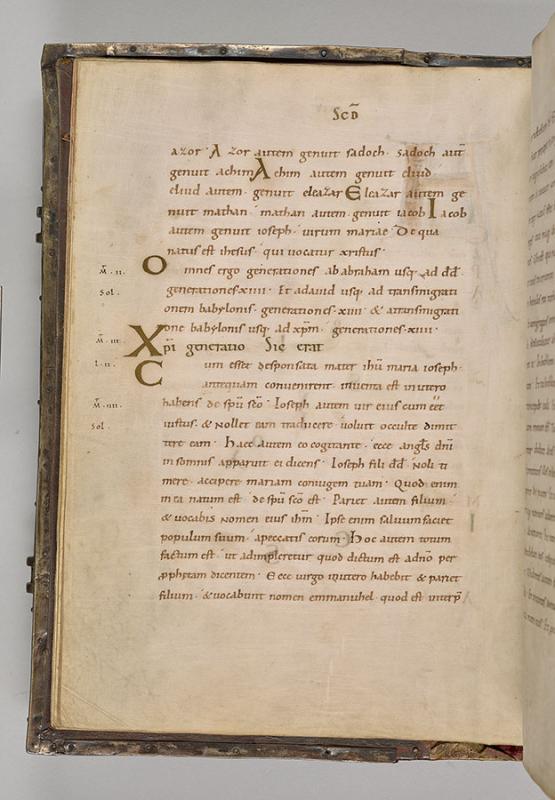 SCD̄
azor · Azor autem genuit sadoch · sadoch aut̄
genuit achim Achim autem genuit eliud
eliud autem · genuit eleazar Eleazar autem ge
nuit mathan · mathan autem genuit iacob Iacob
autem genuit ioseph · virum mariae · De qua
natus est ihesus · qui vocatur xristus ·
M̄ · II · Omnes ergo generationes ab abraham usq; ad dd̄ ·
Sol · generationes · xiiii · Et a david usq; ad transmigrati
onem babylonis · generationes · xiiii · & a transmigrati
M̄ · III · one babylonis usq; ad xp̄m · generationes · xiiii ·
L · II · Xp̄i generatio Sic erat
Cum esset desponsata mater ihū maria ioseph ·
antequam convenirent · inventa est in utero
M̄ · IIII · habens de sp̄u sc̄o · Ioseph autem vir eius cum eēt
Sol · iustus · & nollet eam traducere · voluit occulte dimit
tere eam · Haec autem eo cogitante · ecce angl̄s dn̄i
in somnis apparuit ei dicens · Ioseph fili dd̄ · Noli ti
mere · accipere mariam coniugem tuam · Quod enim
in ea natum est · de sp̄u sc̄o est · Pariet autem filium ·
& vocabis nomen eius ih̄m · Ipse enim salvum faciet
populum suum · a peccatis eorum · Hoc autem totum
factum est · ut adimpleretur quod dictum est a dn̄o per
prophetam dicentem · Ecce virgo in utero habebit & pariet
filium · & vocabunt nomen emmanuhel · quod est interp̄